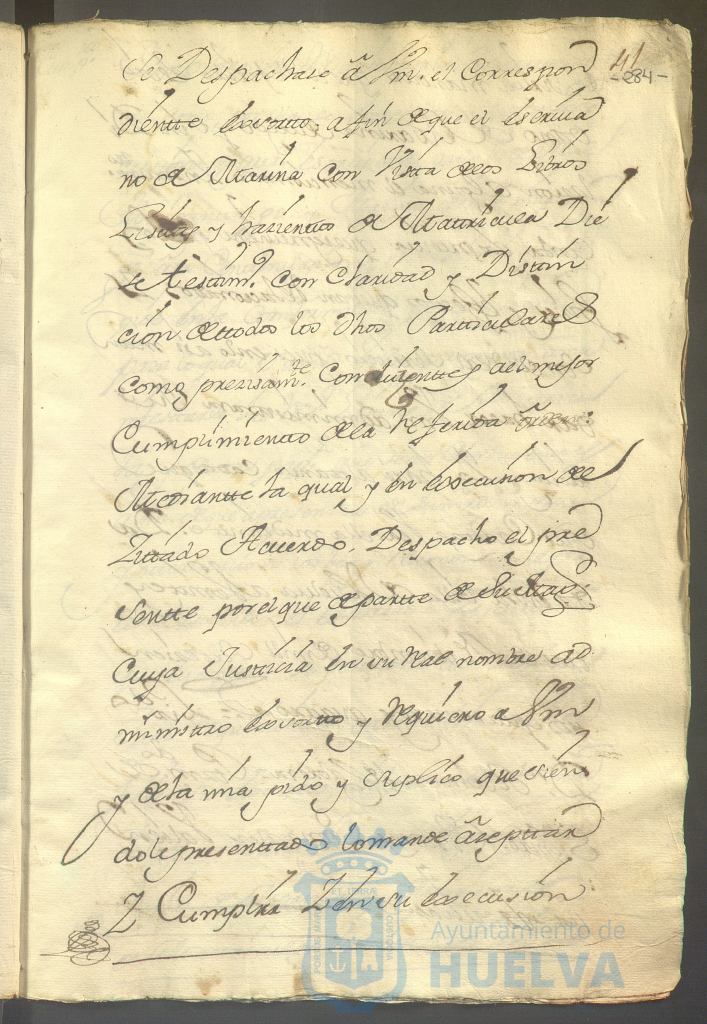 41
-284-
se Despachase â Vm. el Correspon
diente Exorto, a fin de que el escriva
no de Marina con Vista de los Libros
Listas y haziento de Matricula Dié
se testim.º con claridad y Distin
ción de todos los dhos Particulares
como prezisam.te Conduzentes al mejor
Cumplimiento de la referida orden:
Mediante la qual y en execusion del
Zittado Acuerdo, Despacho el pre
sentte por el que de partte de Su Mag.d
Cuya Justicia en su Real nombre ad
ministro exorto y requiero a Vm
y de la mia pido y suplico que sien
dole presenttado lo mande azeptar
Z Cumplir Z en su execusión
Ayuntamiento de
HUELVA